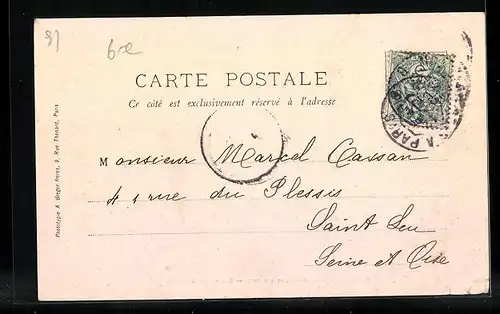 81
6 oe
CARTE POSTALE
Ce côté est exclusivement réservé à l'adresse
A PARIS
Monsieur Marcel Cassan
41 rue du Plessis
Saint Leu
Seine et Oise
Phototypie A. Bergeret, 9, Rue Thénard, Paris